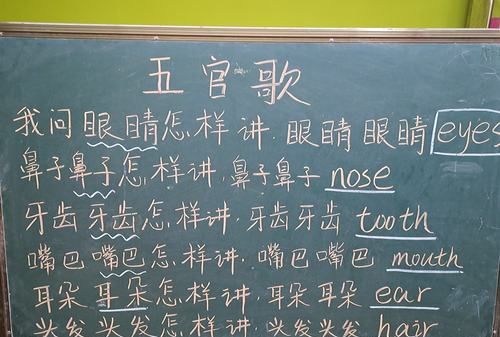 五官歌
我问眼睛怎样讲.眼睛眼睛eyes
鼻子鼻子怎样讲,鼻子鼻子nose
牙齿牙齿怎样讲,牙齿牙齿tooth
嘴巴嘴巴怎样讲.嘴巴嘴巴mouth
耳朵耳朵怎样讲,耳朵耳朵ear
头发头发怎样讲,头发头发hair